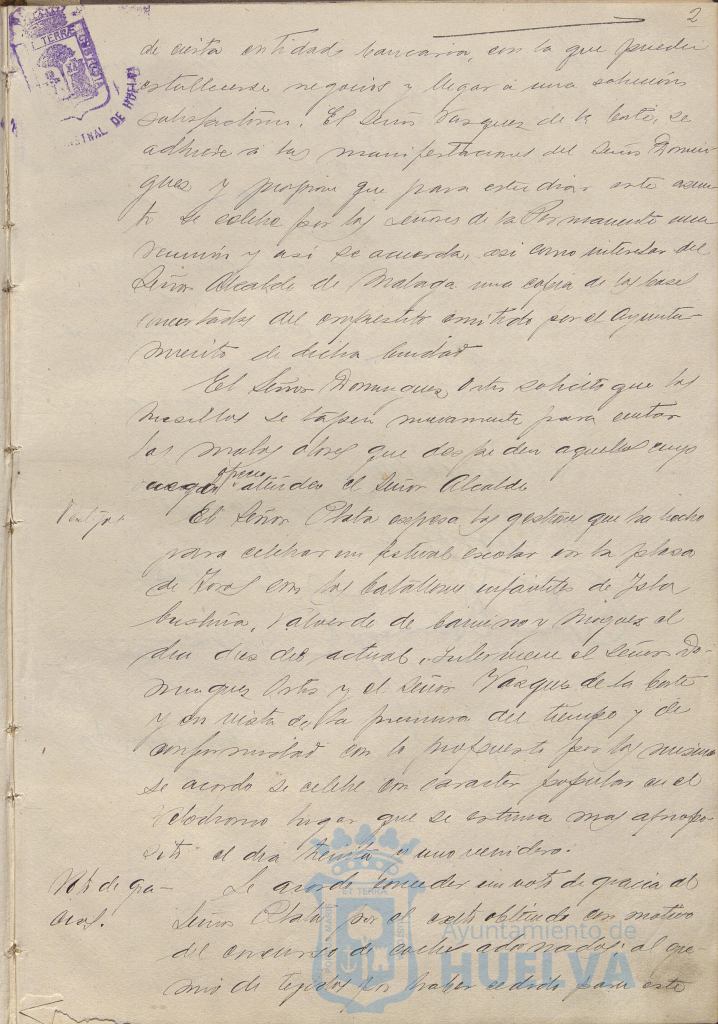 2
de cierta entidad bancaria, con la que pueden
establecerse negocios y llegar a una solución
satisfactoria. El Señor Vazquez de la Corte, se
adhiere a las manifestaciones del Señor Domin-
guez y propone que para estudiar este asun-
to se celebre por los Señores de la Permanente una
reunión y así se acuerda, asi como interesar del
Señor Alcalde de Malaga una copia de las bases
concertadas del emprestito emitido por el Ayunta-
miento de dicha Ciudad
El Señor Dominguez Ortiz solicita que los
husillos se tapen nuevamente para evitar
los malos olores que despiden aquellos cuyo
ruego ofrece atender el Señor Alcalde
Festejos
El Señor Plata expone las gestiones que ha hecho
para celebrar un festival escolar en la plaza
de Toros con los batallones infantiles de Isla
Cristina, Valverde del Camino y Moguer el
dia diez del actual. Interviene el Señor Do-
minguez Ortiz y el Señor Vazquez de la Corte
y en vista de la premura del tiempo y de
conformidad con lo propuesto por los mismos
se acordo se celebre con caracter popular en el
Velodromo lugar que se estima mas apropo-
sito el dia treinta y uno venidero.
Voto de gra-
cias.
Se acordo conceder un voto de gracia al
Señor Plata por el exito obtenido con motivo
del concurso de coches adornados; al gre-
mio de tejidos por haber cedido para este
Ayuntamiento de
HUELVA